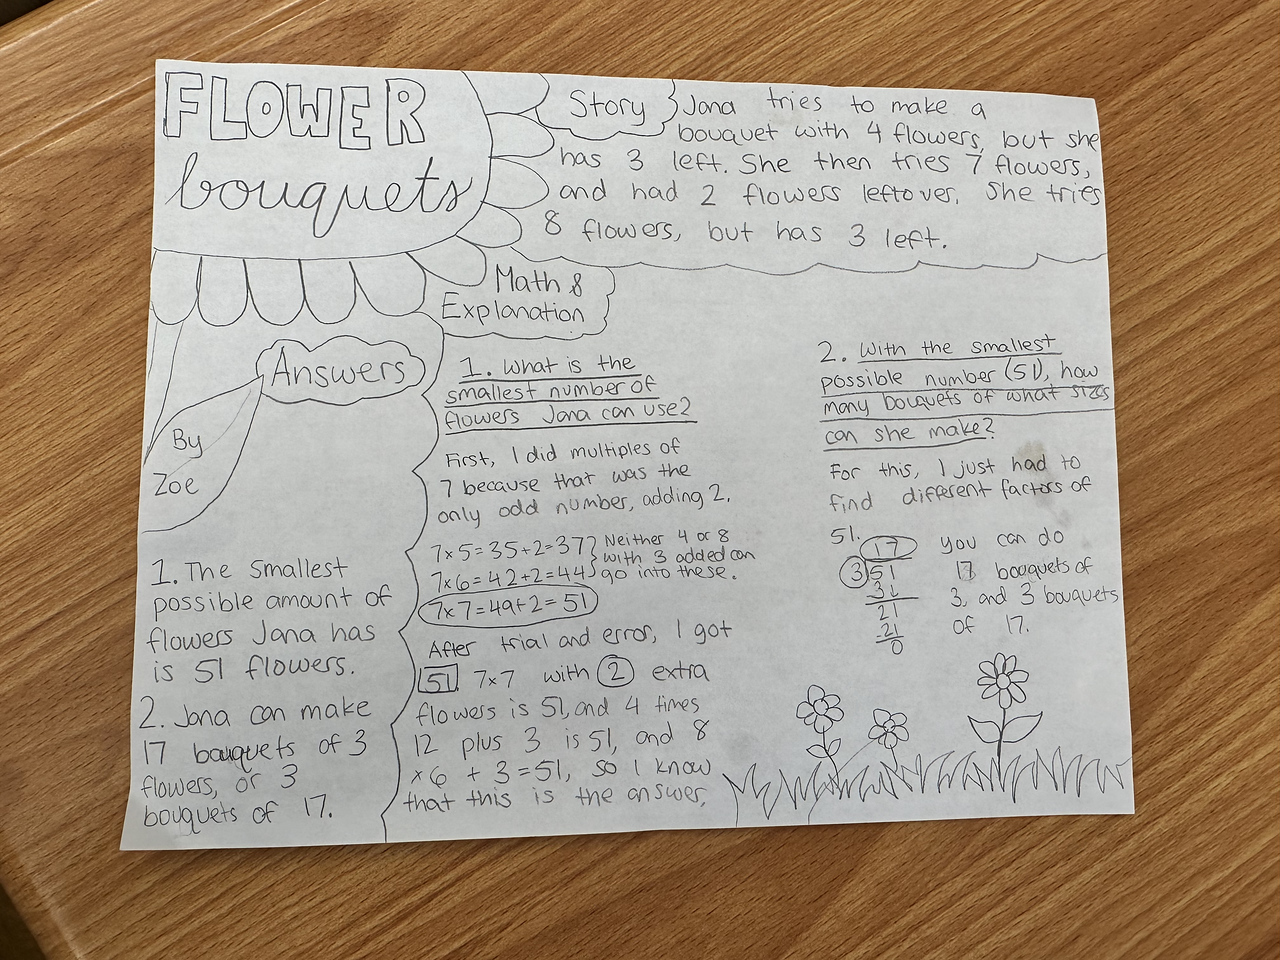 FLOWER
bouquets
Story
Jana tries to make a
bouquet with 4 flowers, but she
has 3 left. She then tries 7 flowers,
and had 2 flowers leftover. She tries
8 flowers, but has 3 left.
Math &
Explanation
Answers
By
Zoe
1. The smallest
possible amount of
flowers Jana has
is 51 flowers.
2. Jana can make
17 bouquets of 3
flowers, or 3
bouquets of 17.
1. What is the
smallest number of
flowers Jana can use?
First, I did multiples of
7 because that was the
only odd number, adding 2.
7x5=35+2=37} Neither 4 or 8
with 3 added can
7x6=42+2=44 go into these.
7x7=49+2=51
After trial and error, I got
51. 7x7 with 2 extra
flowers is 51, and 4 times
12 plus 3 is 51, and 8
x6 + 3=51, so I know
that this is the answer.
2. With the smallest
possible number (51), how
many bouquets of what sizes
can she make?
For this, I just had to
find different factors of
51.
17
3 51
3↓
21
-21
0
you can do
17 bouquets of
3, and 3 bouquets
of 17.